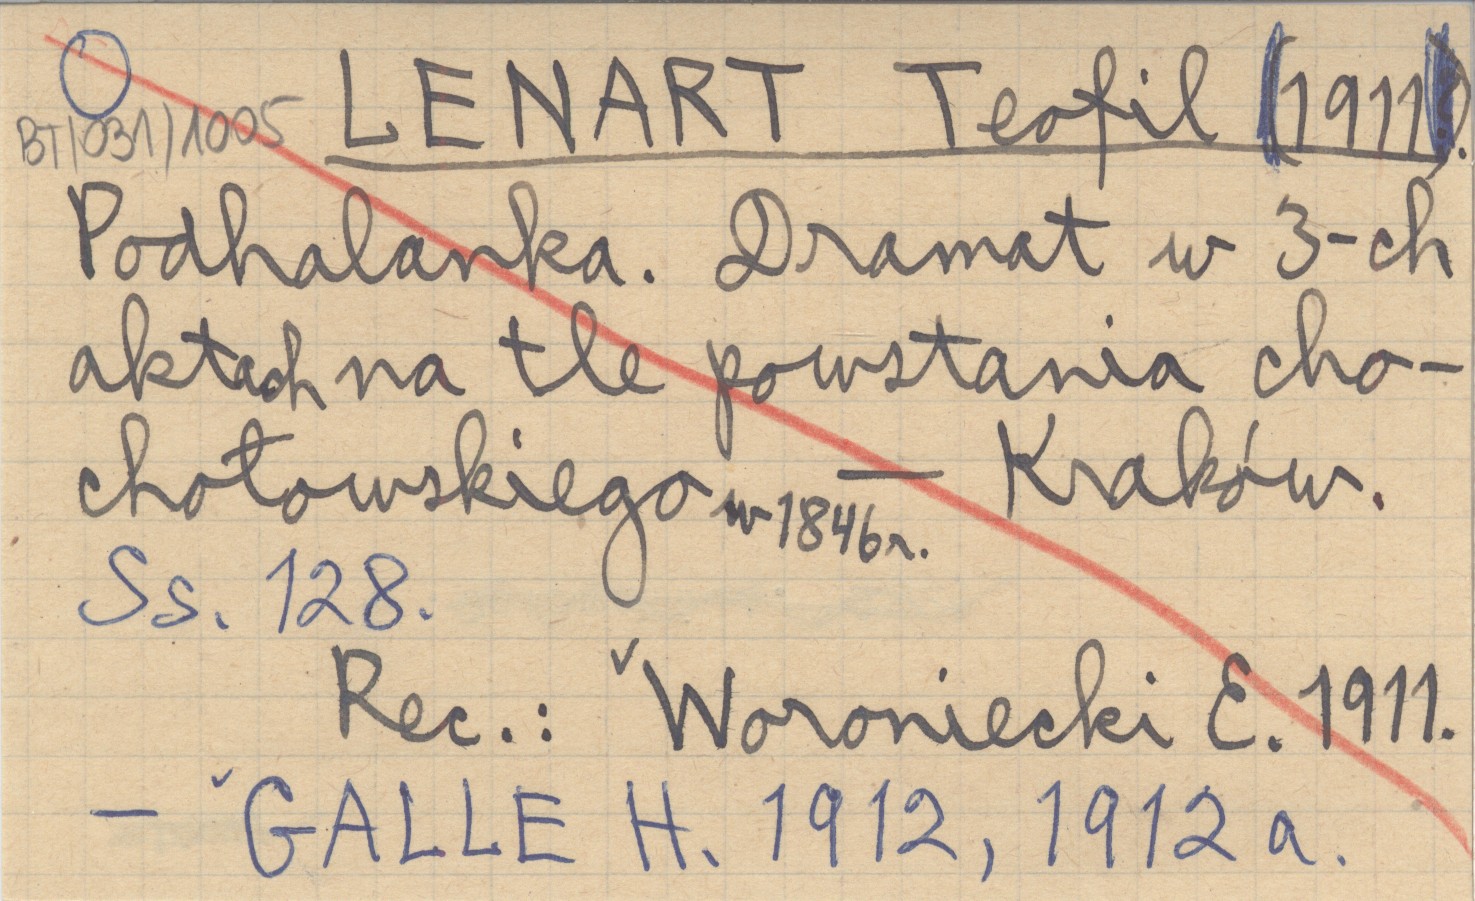 LENART Teofil (1911).
BT/031/1005
Podhalanka. Dramat w 3-ch
aktach na tle powstania cho-
chołowskiego w 1846 r. — Kraków.
Ss. 128.
Rec.: Woroniecki E. 1911.
— GALLE H. 1912, 1912 a.